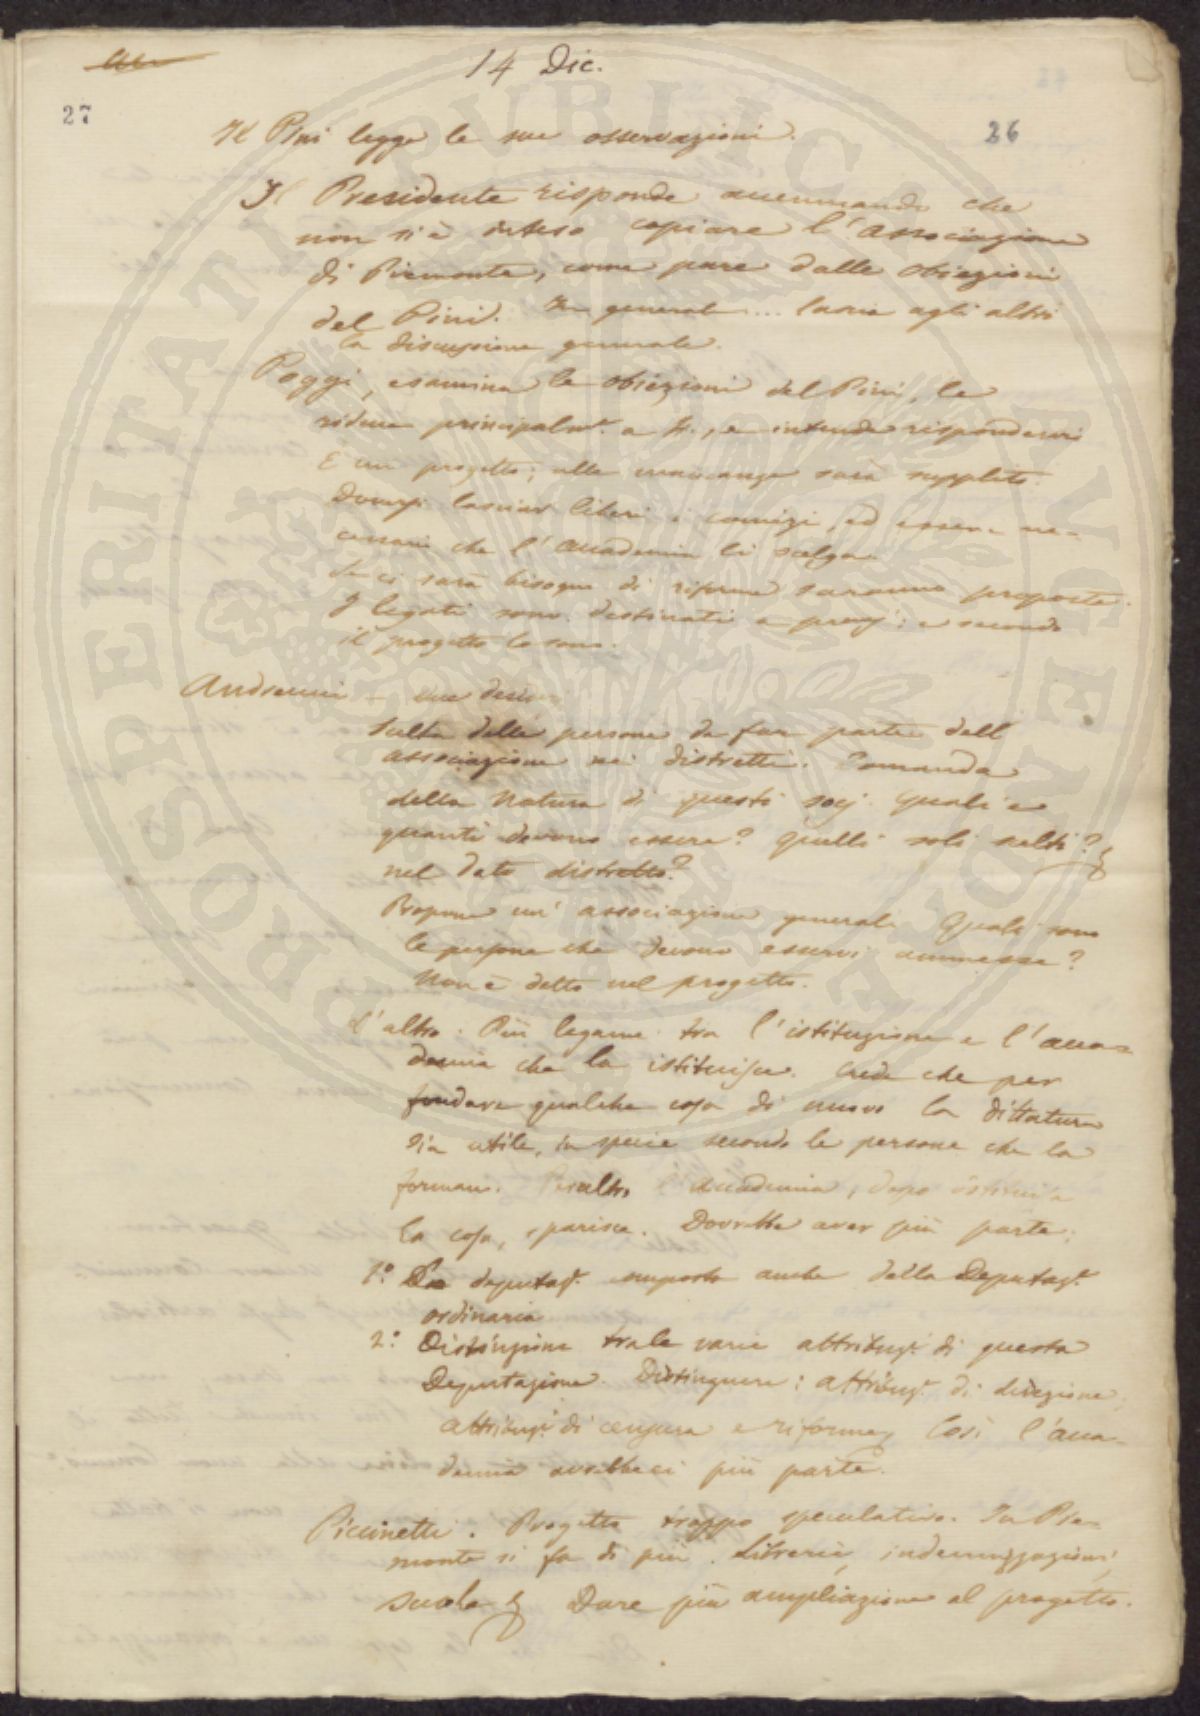 14 Dic.
27
26
Il Pini legge le sue osservazioni.
Il Presidente risponde accennando che
non si è inteso copiare l'associazione
di Piemonte, come pare dalle obiezioni
del Pini. In generale ... lascia agli altri
la discussione generale.
Poggi, esamina le obiezioni del Pini, le
riduce principalmt. a tre, e intende rispondervi
È un progetto; alle mancanze sarà supplito.
Doversi lasciar liberi i comizi, ed esser ne-
cessario che l'Accademia li scelga.
Se ci sarà bisogno di riforme saranno proposte.
I legati sono destinati a premj: e secondo
il progetto lo sono.
Andreucci - due desid
Scelta delle persone da far parte dell
associazione nei distretti. Domanda
della natura di questi socj. Quali e
quanti devono essere? Quelli soli scelti?
nel dato distretto?
Propone un'associazione generale. Quali sono
le persone che devono esservi ammesse?
Non è detto nel progetto.
L'altro: Più legame tra l'istituzione e l'acca-
demia che la istituisce. Crede che per
fondare qualche cosa di nuovo la dittatura
sia utile, in specie secondo le persone che la
formano. Peraltro l'Accademia, dopo istituita
la cosa, sparisce. Dovrebbe aver più parte:
1.º La deputaz.e composta anche della Deputaz.e
ordinaria
2.º Distinzione tra le varie attribuz.i di questa
Deputazione. Distinguere: attribuz.i di direzione,
attribuz.i di censura e riforma; Così l'acca-
demia avrebbeci più parte.
Piccinetti. Progetto troppo speculativo. In Pie-
monte si fa di più. Librerie, indennizzazioni,
scuole & Dare più ampliazione al progetto.
PROSPERITATI PUBLICAE AUGENDAE